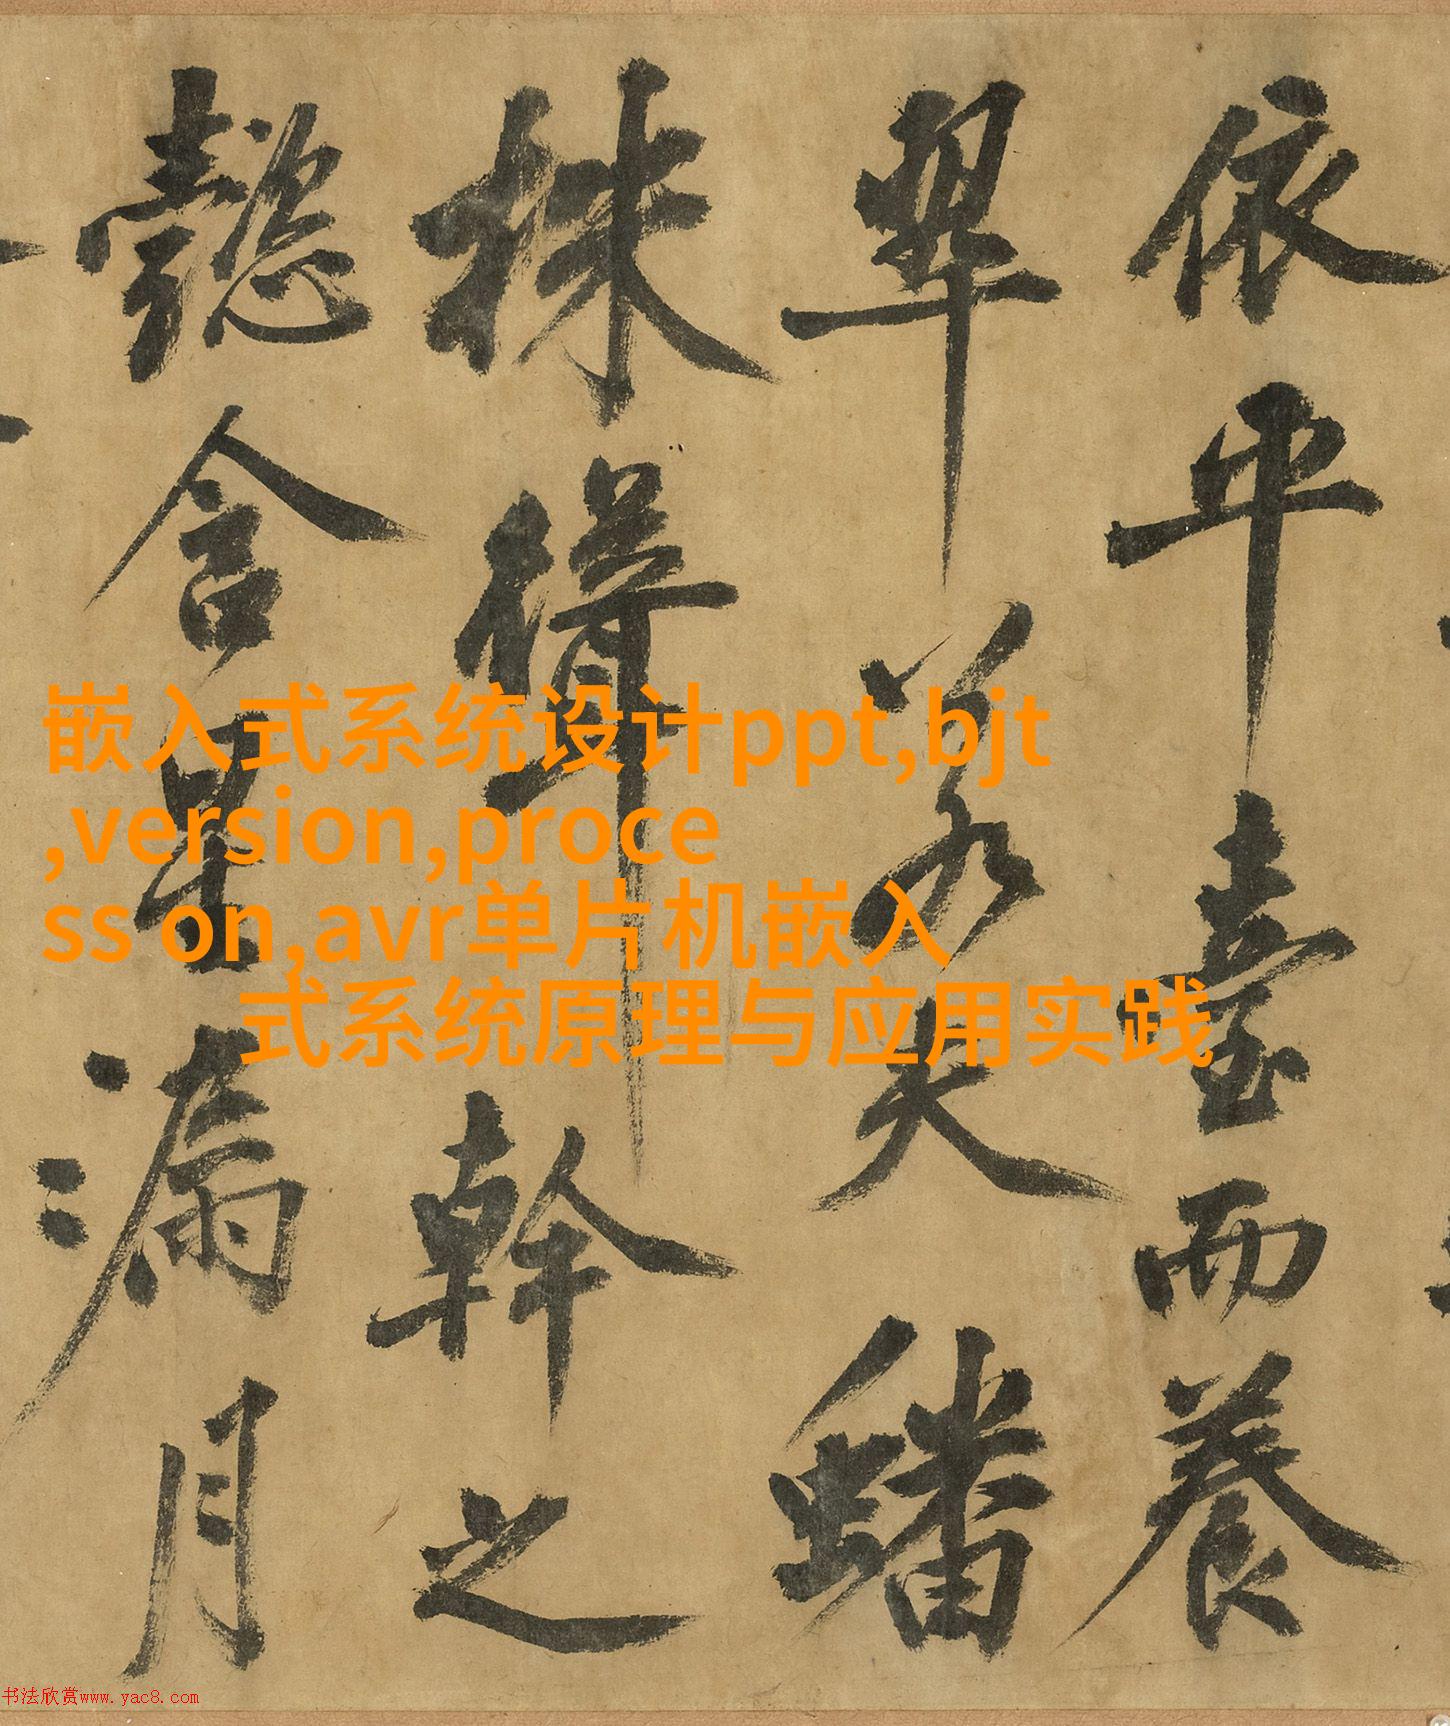 依平臺而養
翠若夫蟠
株聳幹之
懿含星漏月
嵌入式系统设计ppt,bjt
,version,proce
ss on,avr单片机嵌入
式系统原理与应用实践
书法欣赏www.yac8.com